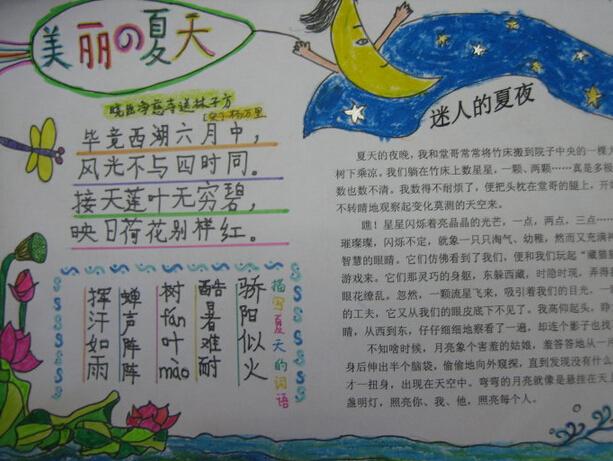 美丽の夏天
晓出净慈寺送林子方
毕竟西湖六月中，
风光不与四时同。
接天莲叶无穷碧，
映日荷花别样红。
描写夏天的词语
骄阳似火
酷暑难耐
树fán叶mào
蝉声阵阵
挥汗如雨
迷人的夏夜
夏天的夜晚，我和堂哥常常将竹床搬到院子中央的一棵大
树下乘凉，我们躺在竹床上数星星，一颗、两颗……真是多极
数也数不清。我数得不耐烦了，便把头枕在堂哥的腿上，开始
不转睛地观察起变化莫测的天空来。
瞧！星星闪烁着亮晶晶的光芒，一点，两点，三点……
璀璨璨，闪烁不定，就象一只只淘气、幼稚，然而又充满神
智慧的眼睛。它们仿佛看到了我们，便和我们玩起“藏猫猫
游戏来。它们那灵巧的身躯，东躲西藏，时隐时现，弄得
眼花缭乱。忽然，一颗流星飞来，吸引着我们的目光。一
的工夫，它又从我们的眼皮底下不见了。我高仰起头，睁
睛，从西到东，仔仔细细地察看了一遍，却连个影子也找
不知啥时候，月亮象个害羞的姑娘，羞答答地从一
身后伸出半个脑袋，偷偷地向外窥探，直到发现没有什么
才一扭身，出现在天空中。弯弯的月亮就像是悬挂在天上
盏明灯，照亮你、我、他，照亮每个人。